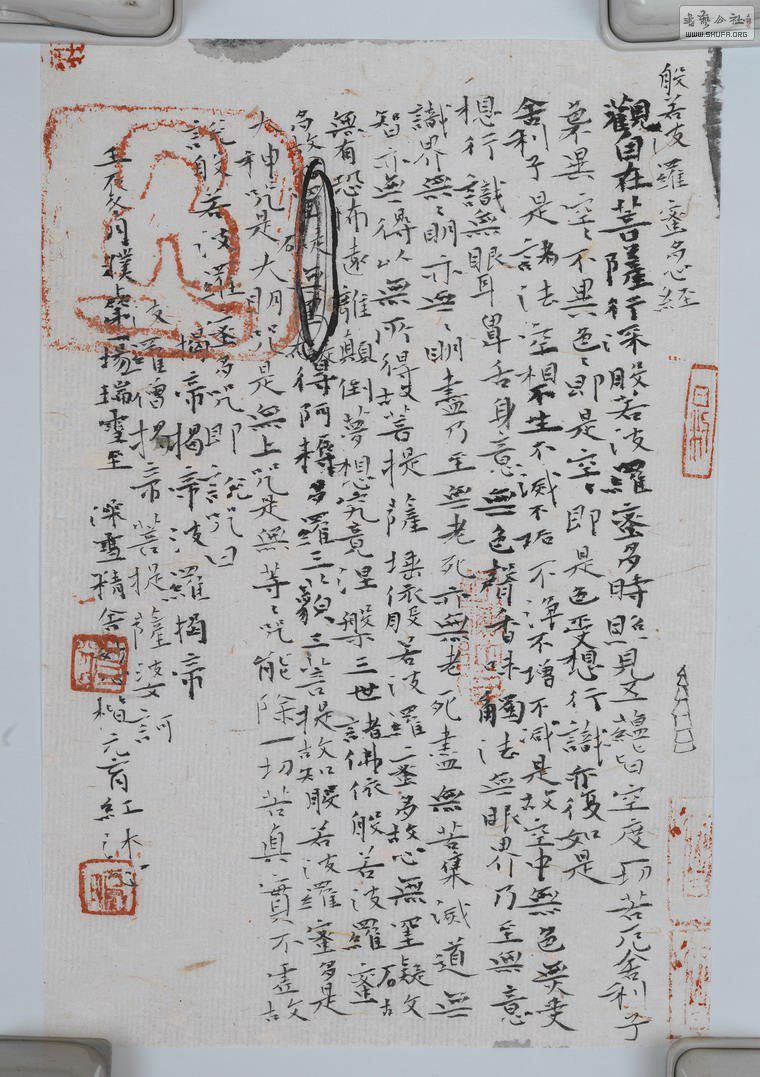 般若波羅蜜多心経
觀自在菩薩行深般若波羅蜜多時照見五蘊皆空度一切苦厄舍利子
異空空不異色色即是空空即是色受想行識亦復如是
舍利子是諸法空相不生不滅不垢不淨不增不減是故空中無色無受
想行識無眼耳鼻舌身意無色聲香味觸法無眼界乃至無意
識界無無明亦無無明盡乃至無老死亦無老死盡無苦集滅道無
智亦無得以無所得故菩提薩埵依般若波羅蜜多故心無罣礙故
無有恐怖遠離顛倒夢想究竟涅槃三世諸佛依般若波羅蜜
多故得阿耨多羅三三藐三菩提故知般若波羅蜜多是
大神咒是大明咒是無上咒是無等等咒能除一切苦真實不虛故
說般若波羅蜜多咒即說咒曰
揭帝揭帝波羅揭帝
波羅僧揭帝菩提薩婆訶
壬辰冬月 瑞雪至 深雪精舍
書艺公社
WWW.SHUFA.ORG